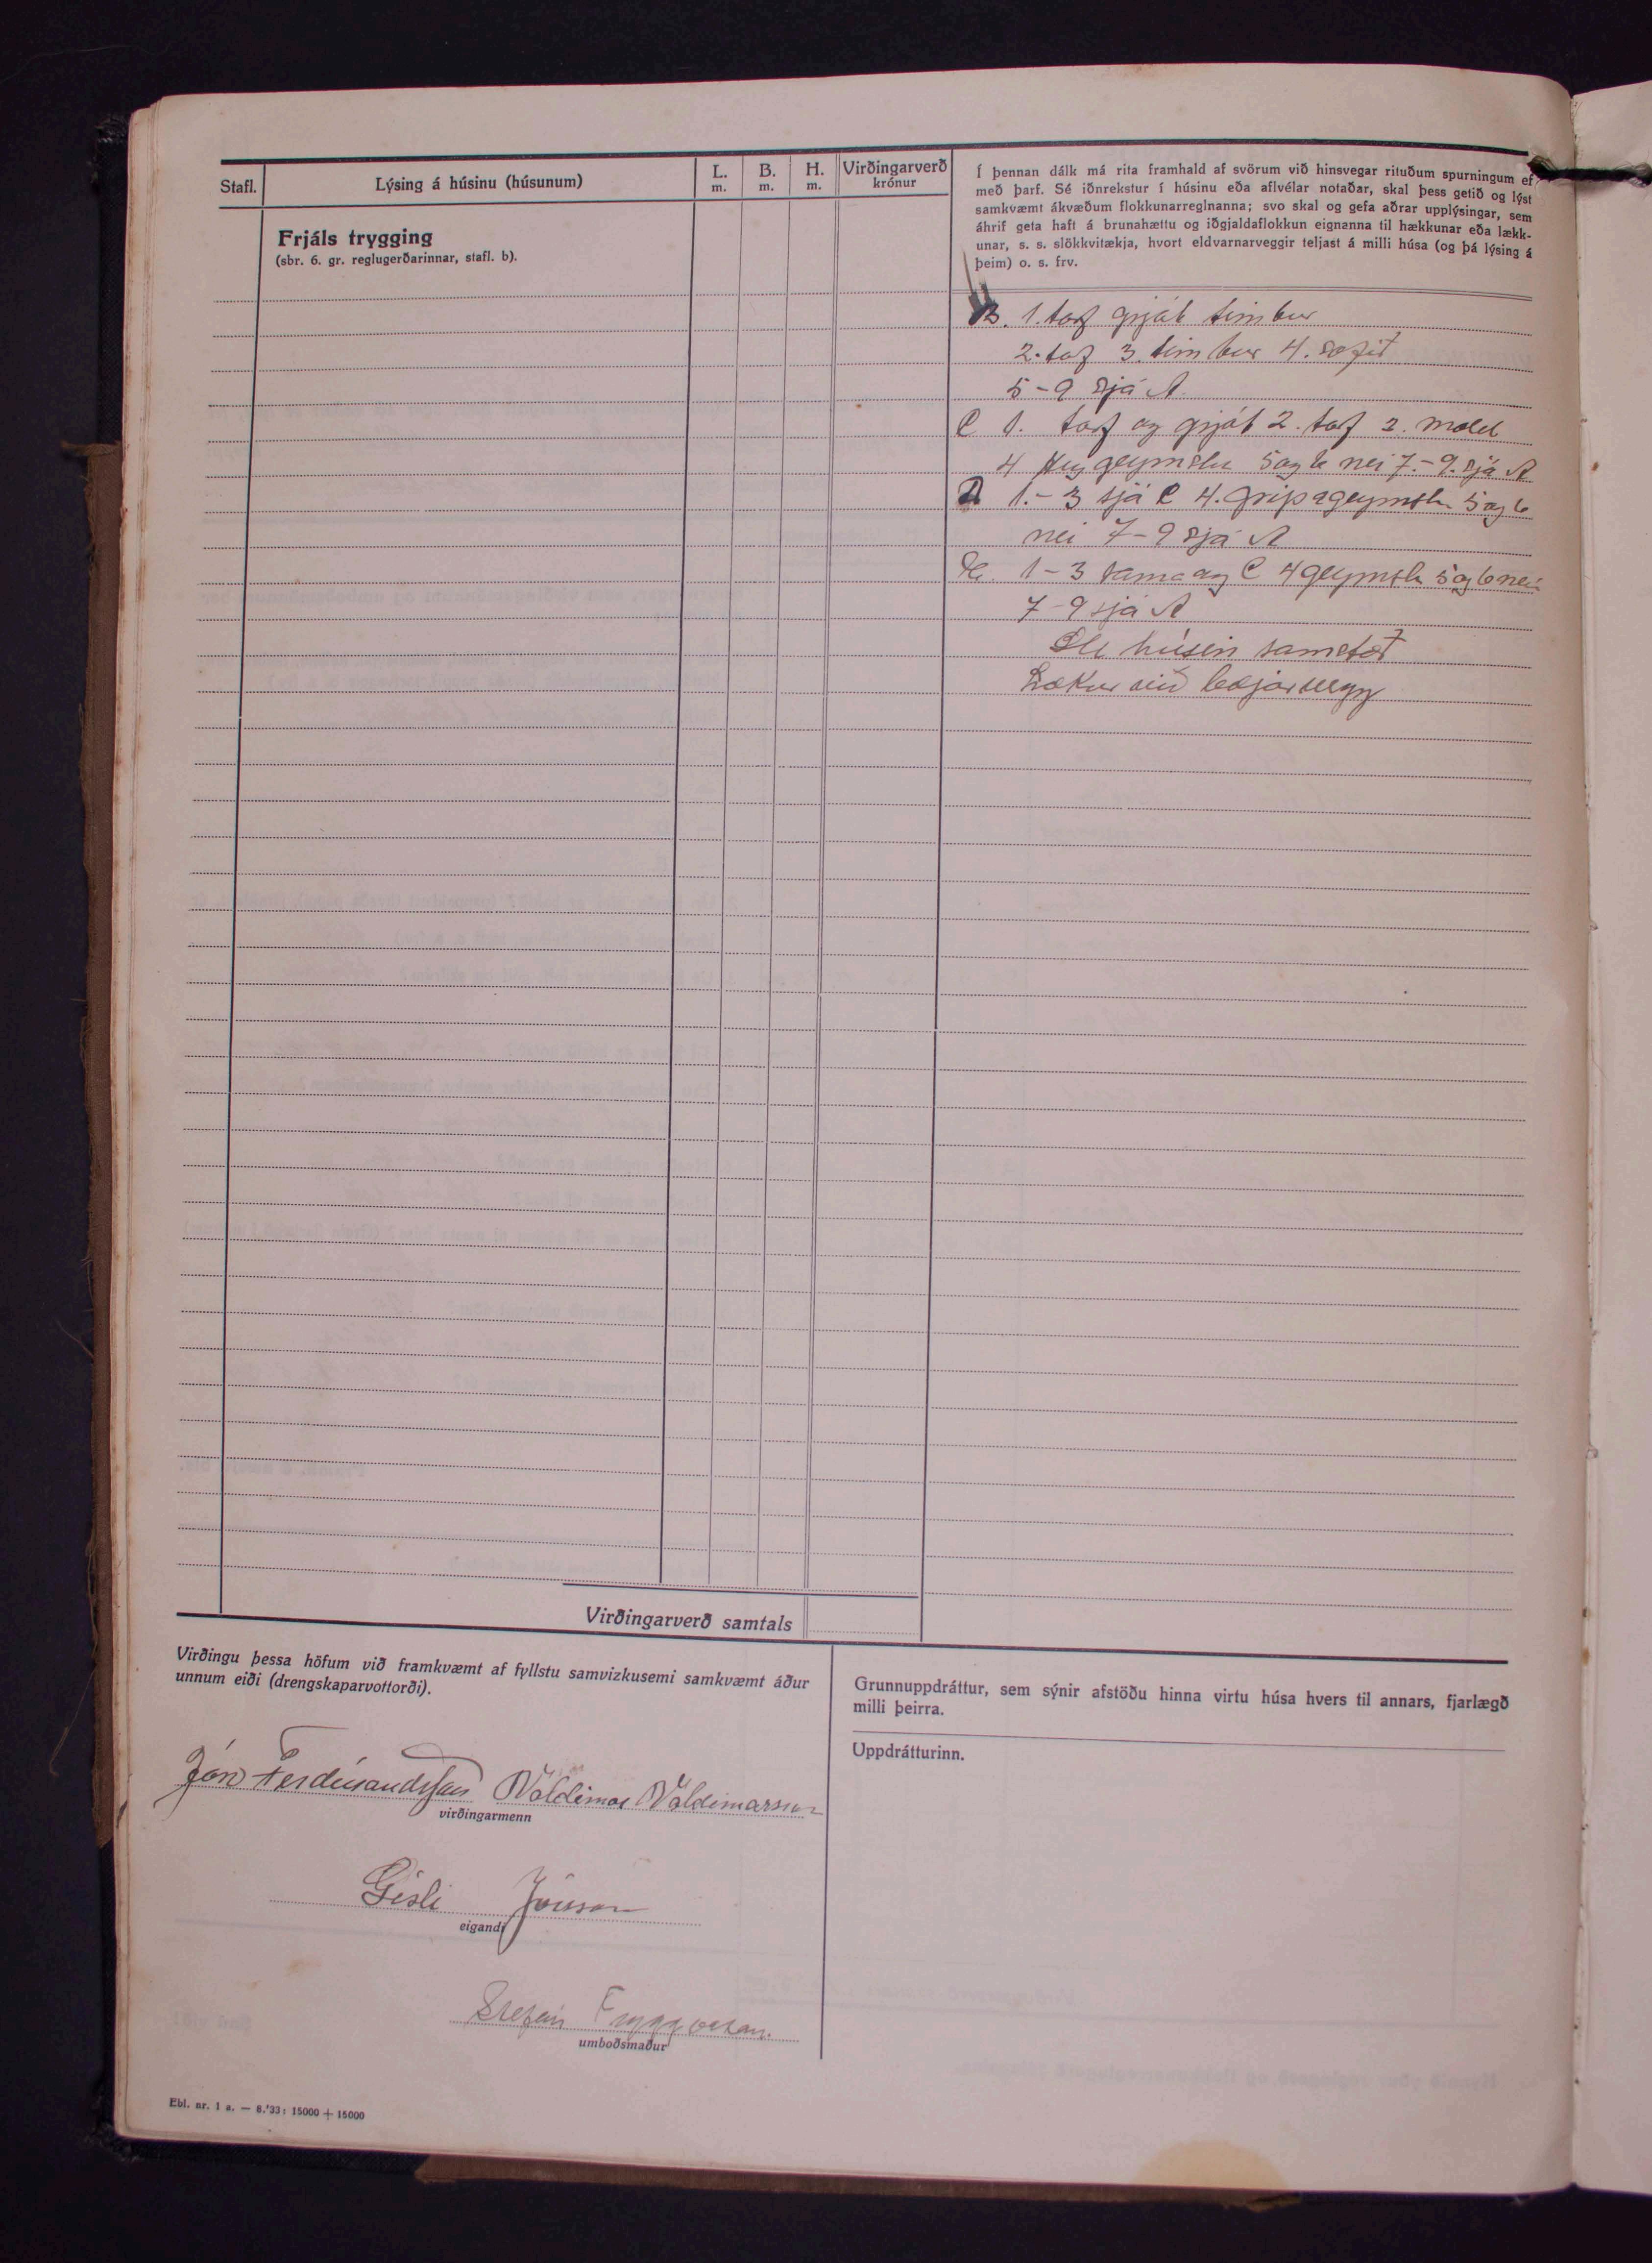 Stafl.
Lýsing á húsinu (húsunum)
L.
m.
B.
m.
H.
m.
Virðingarverð
krónur
Frjáls trygging
(sbr. 6. gr. reglugerðarinnar, stafl. b).
Í þennan dálk má rita framhald af svörum við hinsvegar rituðum spurningum ef
með þarf. Sé iðnrekstur í húsinu eða aflvélar notaðar, skal þess getið og lýst
samkvæmt ákvæðum flokkunarreglnanna; svo skal og gefa aðrar upplýsingar, sem
áhrif geta haft á brunahættu og iðgjaldaflokkun eignanna til hækkunar eða lækk-
unar, s. s. slökkvitækja, hvort eldvarnarveggir teljast á milli húsa (og þá lýsing á
þeim) o. s. frv.
B. 1. torf grjót timbur
2. torf 3. timbur 4. sofið
5-9 sjá A.
C 1. torf og grjót 2. torf 3. mold
4 Heygeymslu 5 og 6 nei 7.-9. sjá A
D 1.-3 sjá C 4. gripageymsla 5 og 6
nei 7-9 sjá A
1-3 sama og C 4 geymsla 5 og 6 nei
7-9 sjá A
húsin samstæð
Lækur við bæjarvegg
Virðingarverð samtals
Virðingu þessa höfum við framkvæmt af fyllstu samvizkusemi samkvæmt áður
unnum eiði (drengskaparvottorði).
Jón Ferdínandsson Valdimar Valdimarsson
virðingarmenn
Gísli Jónsson
eigandi
Stefán Tryggvason.
umboðsmaður
Grunnuppdráttur, sem sýnir afstöðu hinna virtu húsa hvers til annars, fjarlægð
milli þeirra.
Uppdrátturinn.
Ebl. nr. 1 a. — 8.'33: 15000 + 15000